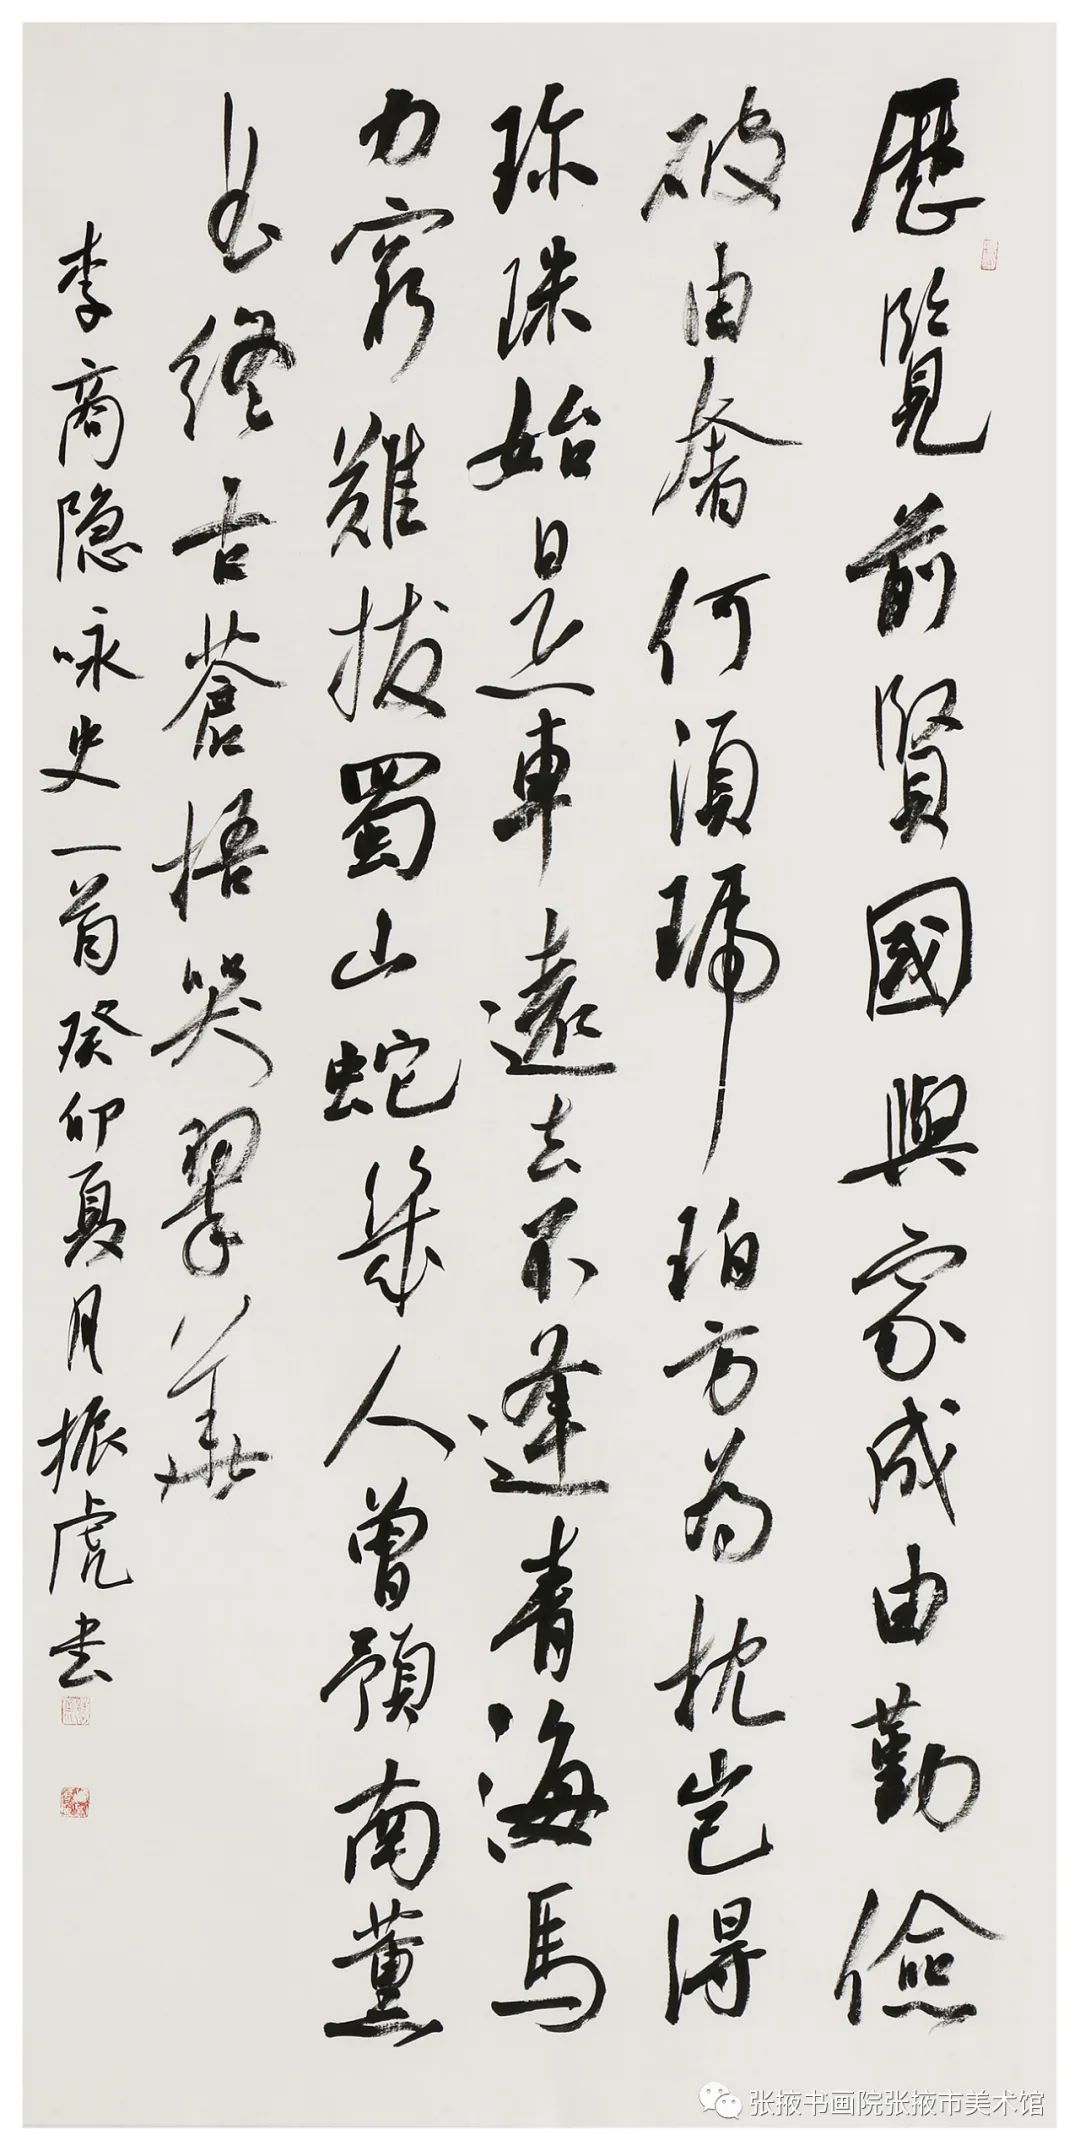 歷覽前賢國與家成由勤儉
破由奢何須琥珀方為枕豈得
珎珠始是車遠去不逢青海馬
力窮難拔蜀山蛇幾人曾預南薰
曲終古蒼梧哭翠華
李商隐咏史一首癸卯夏月振虎书
张掖书画院张掖市美术馆